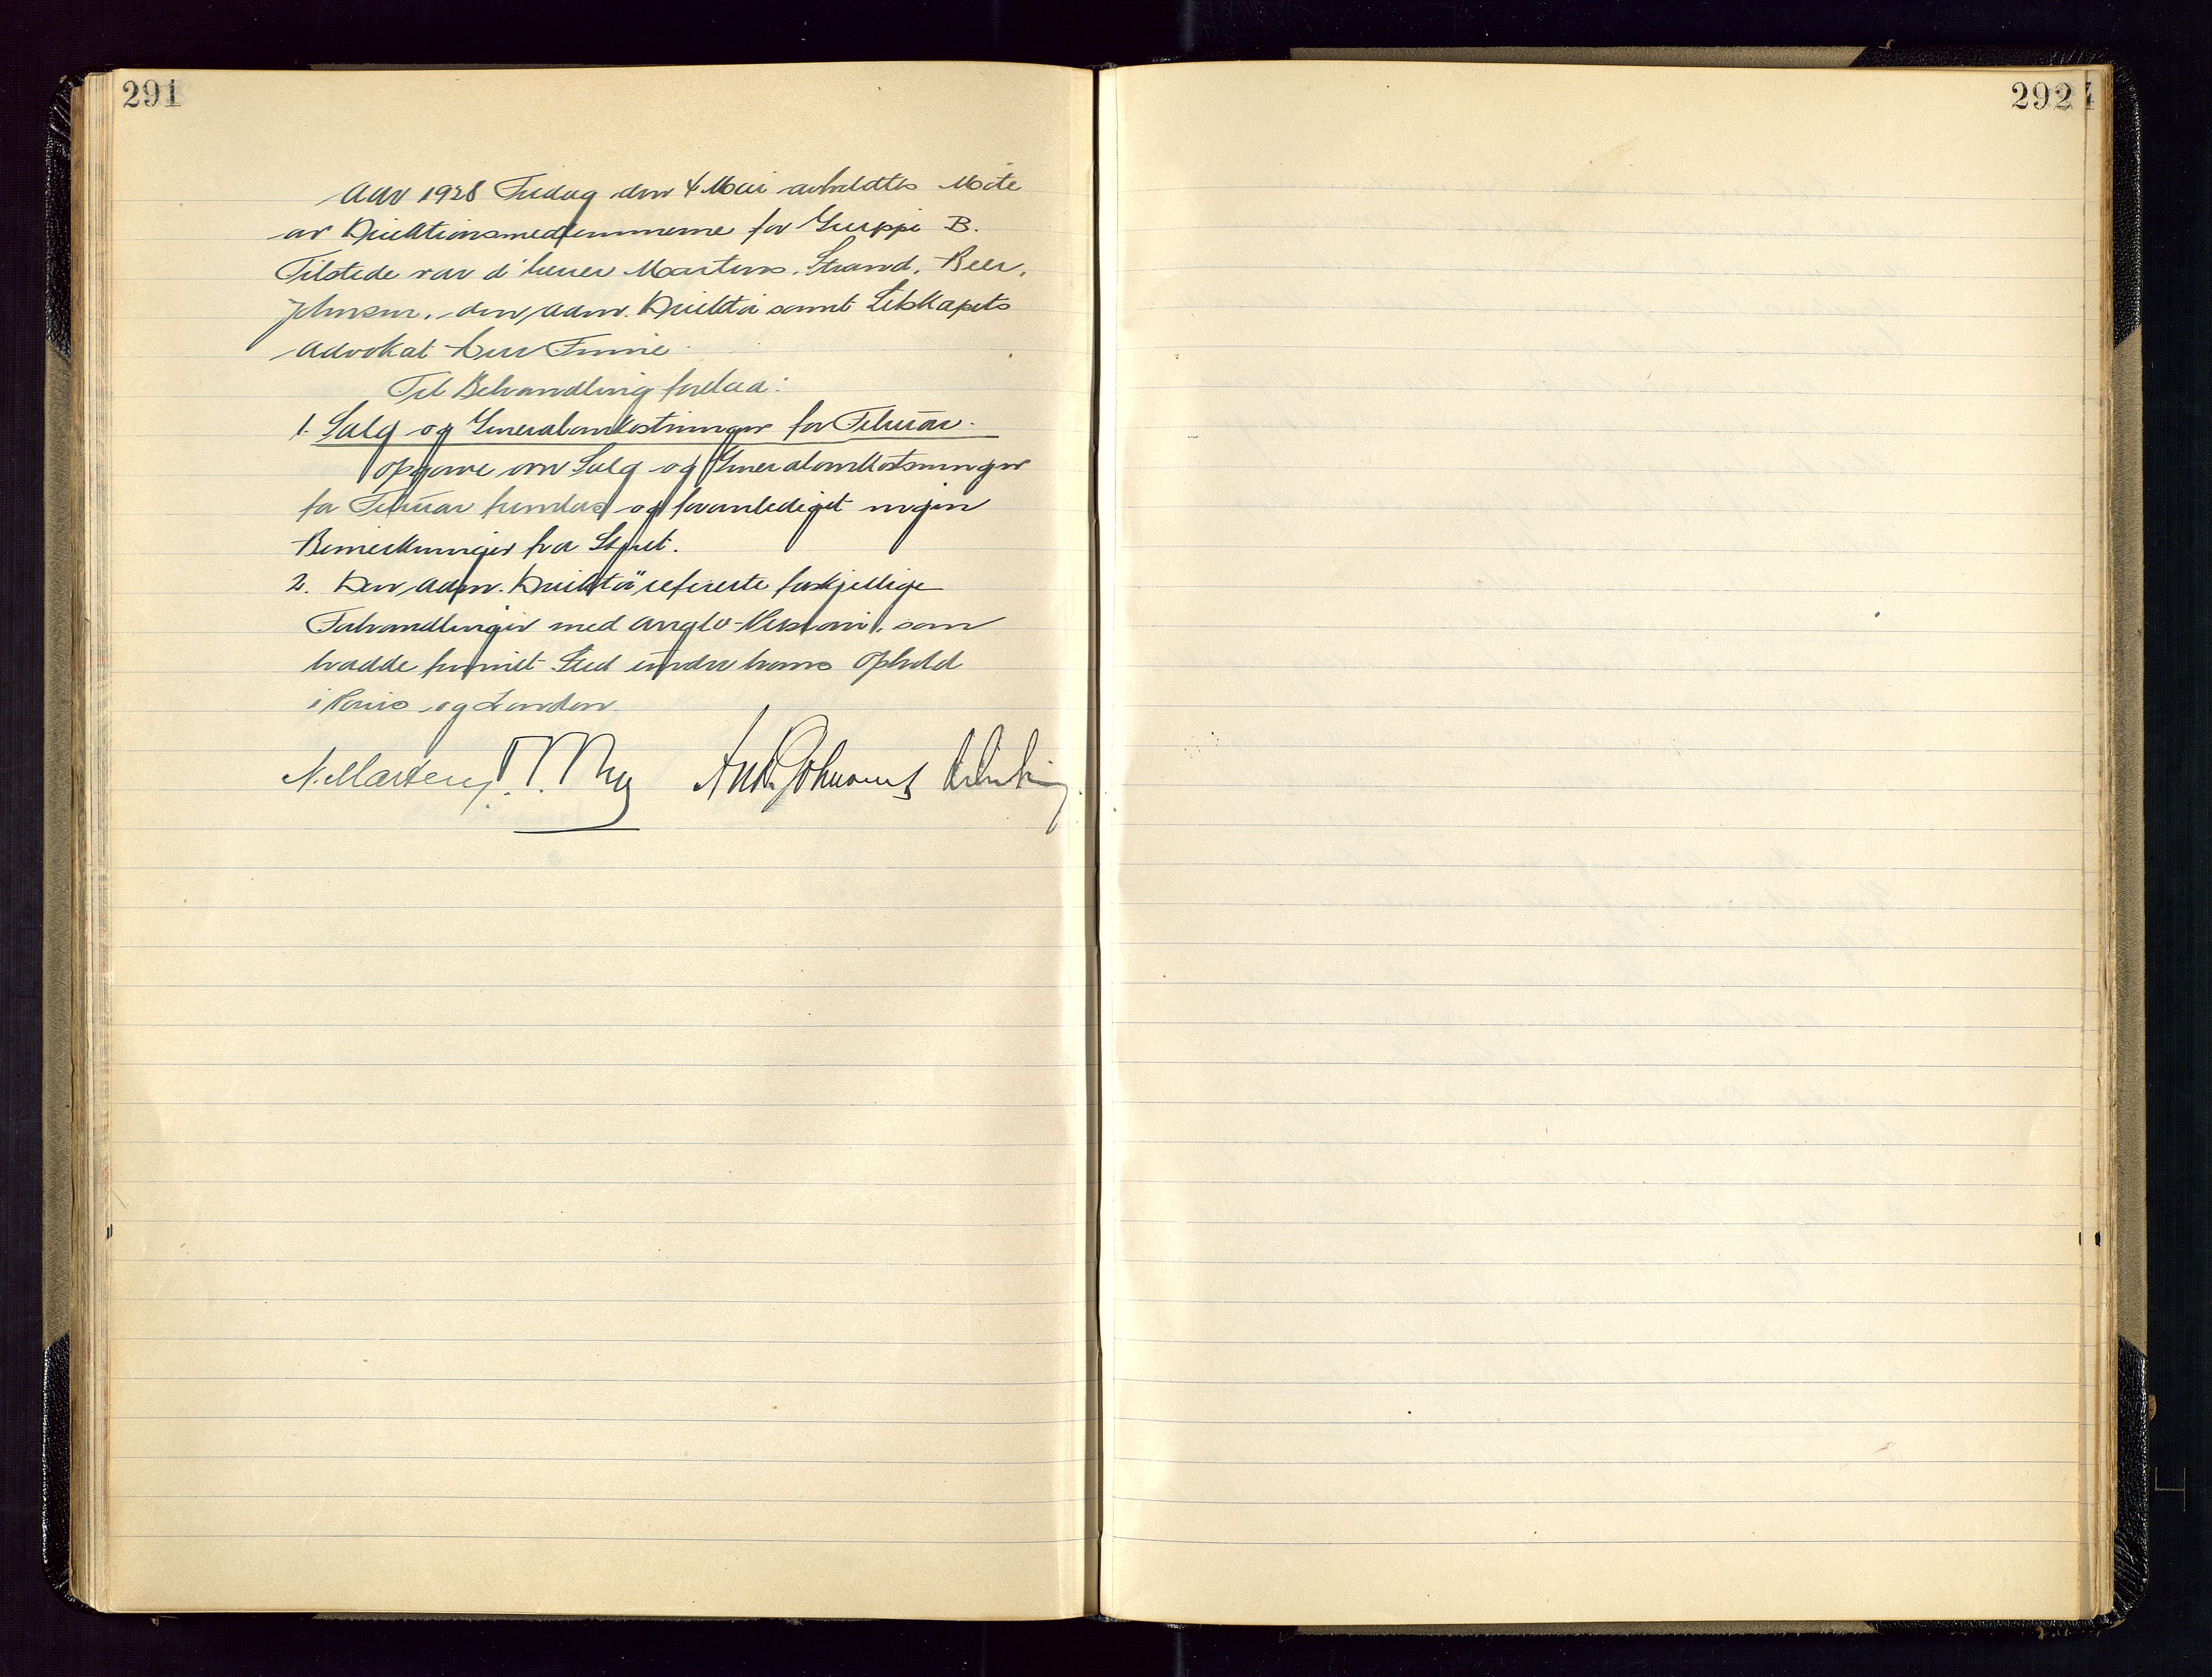 291
Aar 1928 Fredag den 4 Mai avholdtes Møte
av Direktionsmedlemmerne for Gruppe B.
Tilstede var d'herrer Martens, Strand, Beer,
Johnsen, den adm. Direktør samt Selskapets
Advokat herr Finne.
Til Behandling forelaa:
1. Salg og Generalomkostninger for Februar.
Opgave over Salg og Generalomkostninger
for Februar fremlaa og foranlediget ingen
Bemerkninger fra Styret.
2. Den adm. Direktør refererte forskjellige
Forhandlinger med Anglo-Persian, som
hadde funnet Sted under hans Ophold
i Paris og London.
N. Martens
292